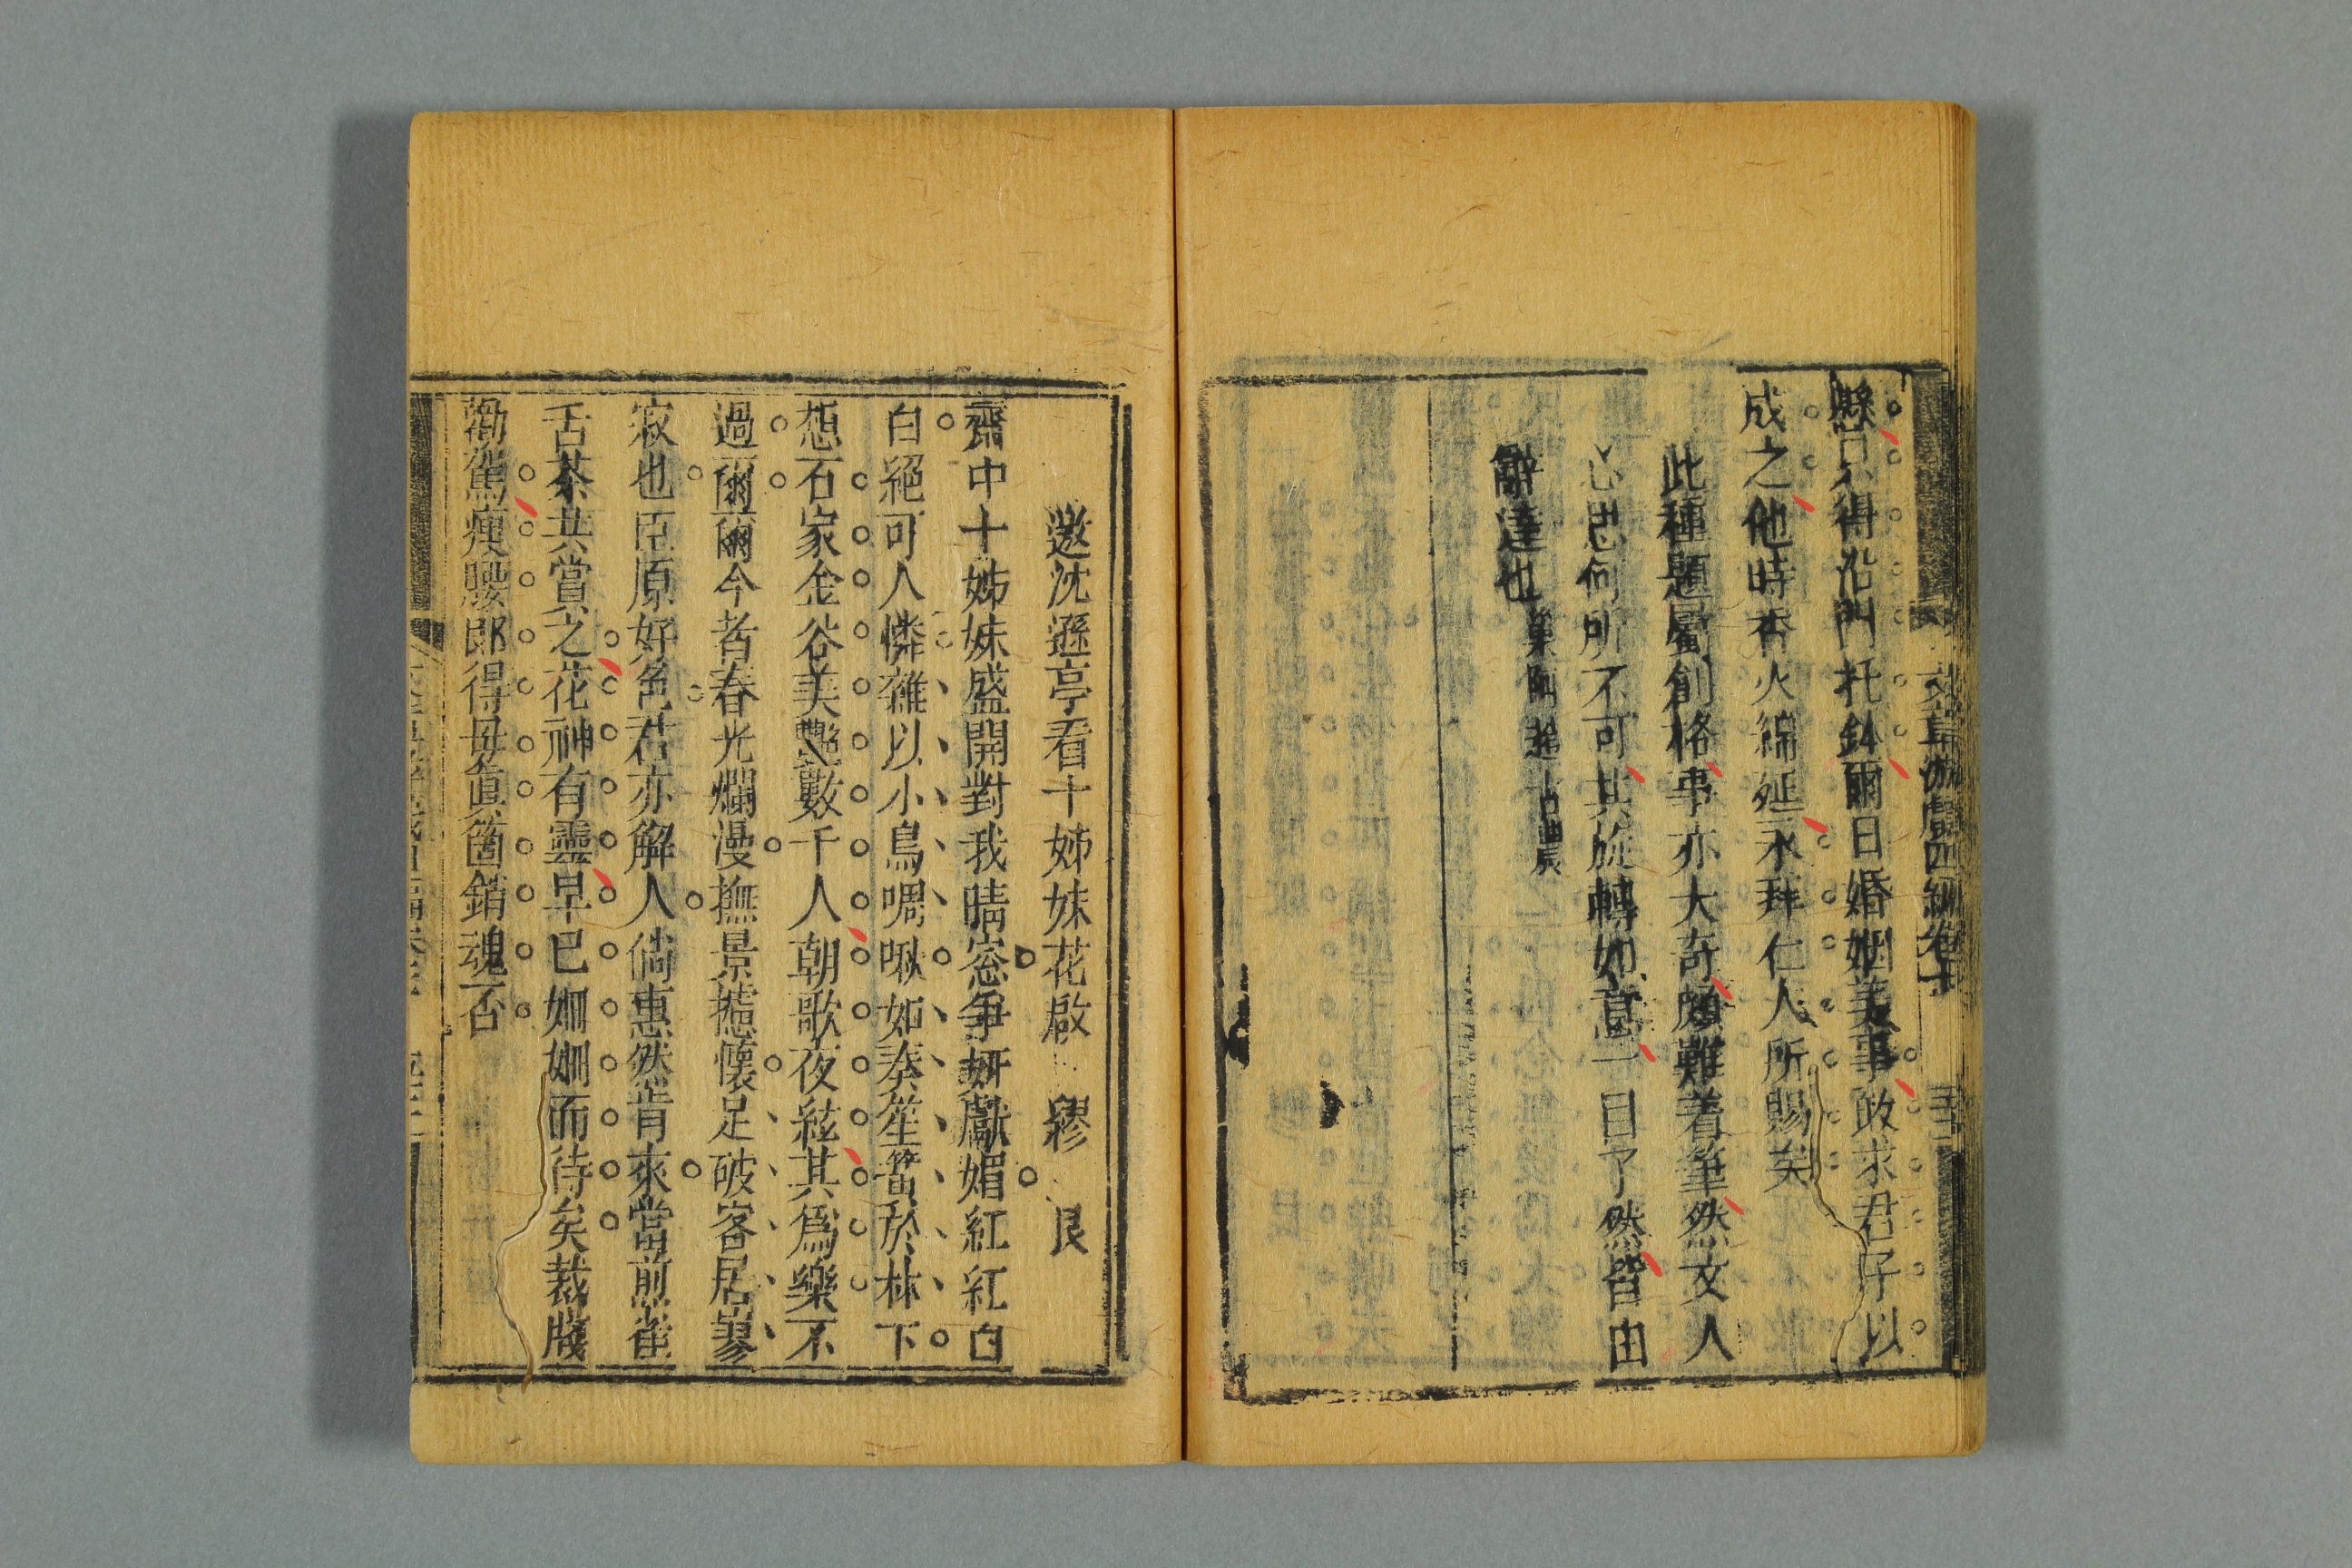 縣只得沿門托鉢爾日婚姻美事敢求君子以
成之他時香火綿延永拜仁人所賜矣
此種題屬創格事亦大奇頗難着筆然文人
心思何所不可其旋轉如意一目了然皆由
辭達也
邀沈遜亭看十姊妹花啟 繆艮
齋中十姊妹盛開對我晴窓爭妍獻媚紅紅白
白絕可人憐雜以小鳥啁啾如奏笙簧於林下
想石家金谷美艷數千人朝歌夜絃其爲樂不
過爾爾今者春光爛漫撫景攄懷足破客居寥
寂也臣原好色君亦解人倘惠然肯來當煎雀
舌茶共賞之花神有靈早已姍姍而待矣裁牋
勒駕瘦腰郎得毋眞箇銷魂否